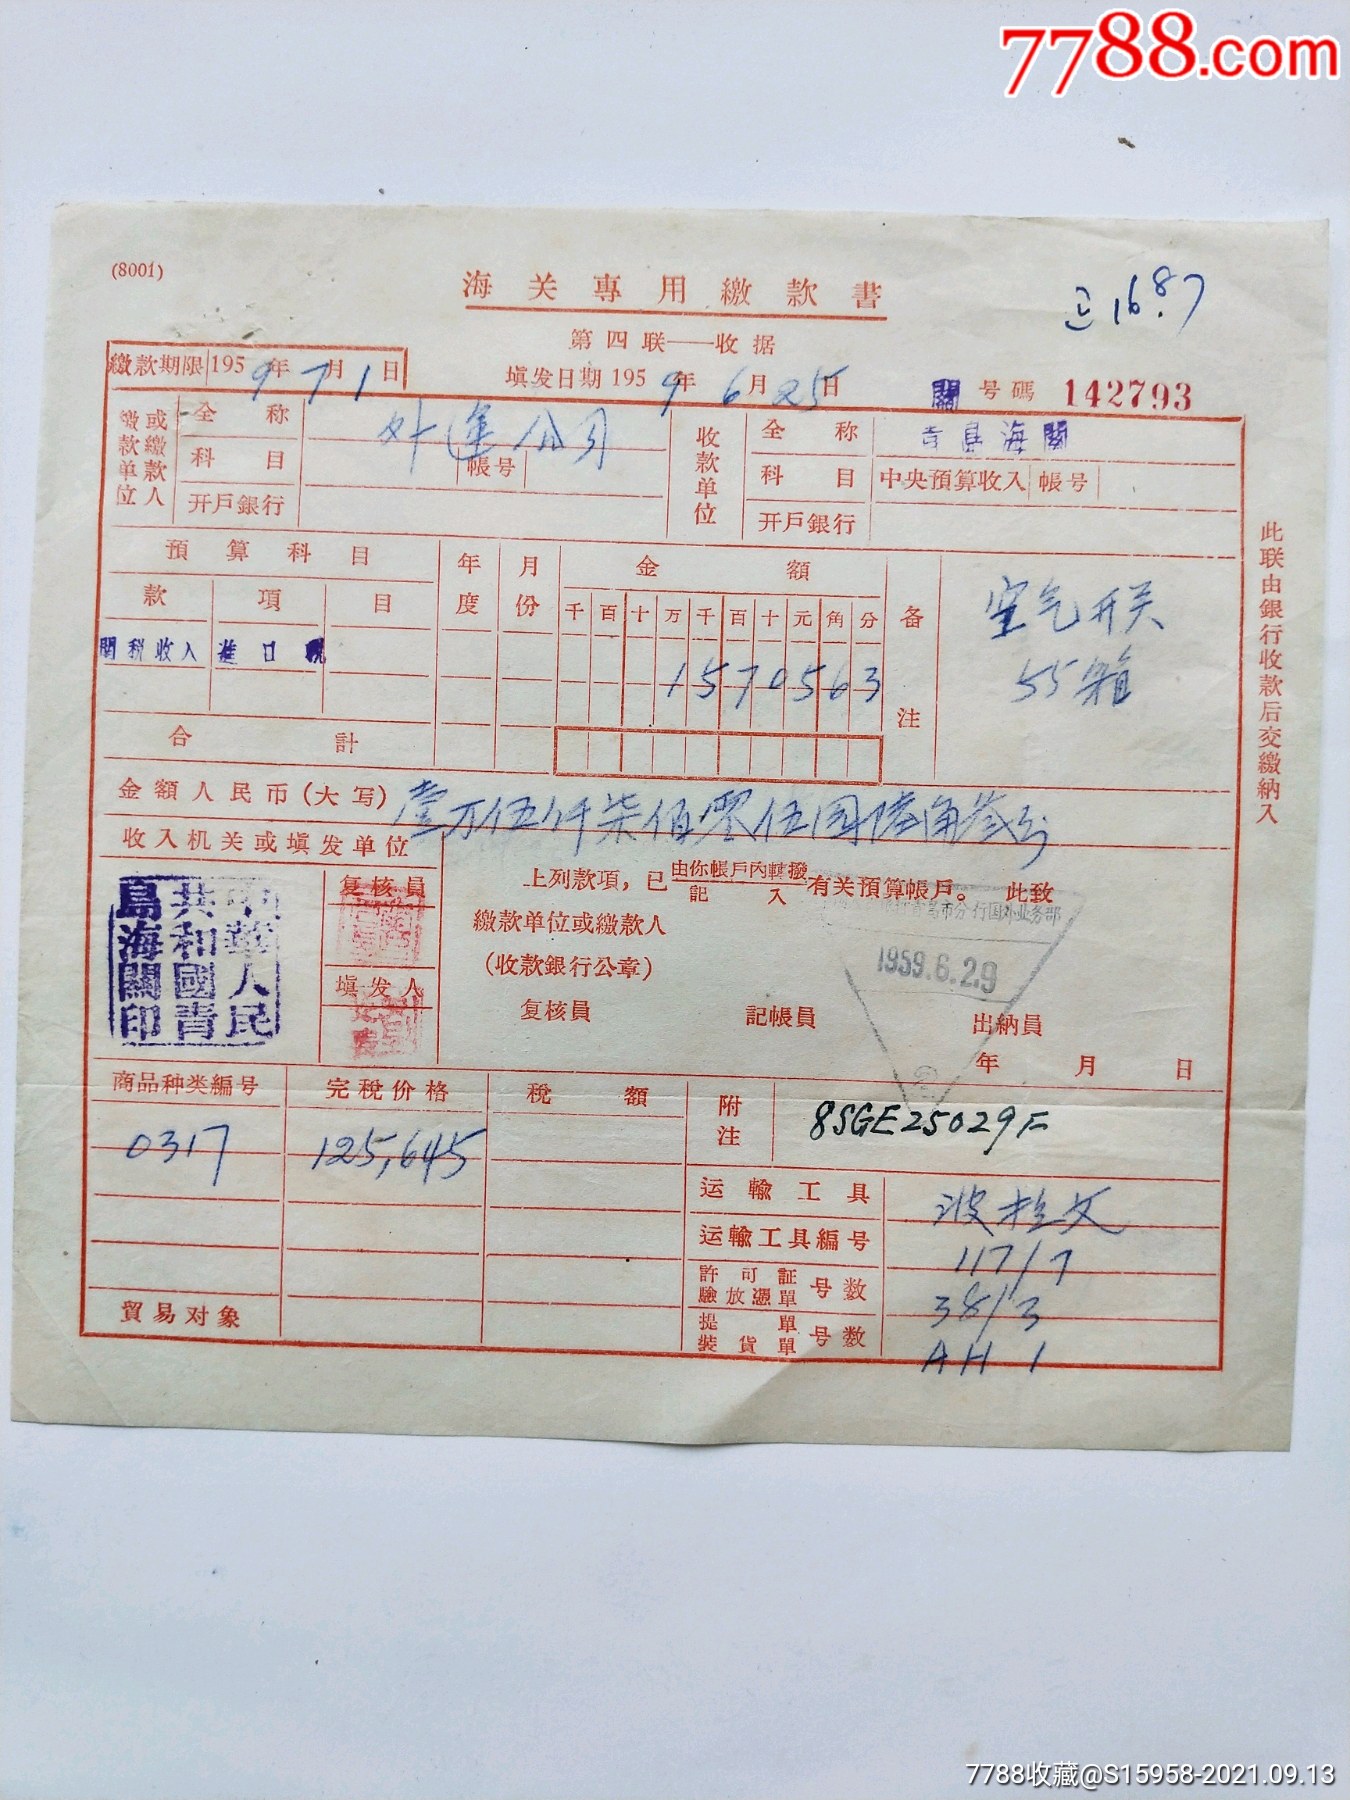 7788.com
(8001)
海关專用繳款書
第四联——收据
16.87
繳款期限 1959年7月1日
填发日期 1959年6月25日
關 号碼 142793
繳款单位或繳款人
全称 外运公司
科目 帳号
开戶銀行
收款单位
全称 青島海關
科目 中央預算收入 帳号
开戶銀行
預算科目 年度 月份 金額 备注
款 項 目 千 百 十 万 千 百 十 元 角 分
空气开关
關稅收入 進口稅
1570563
55箱
合計
金額人民币(大写) 壹万伍仟柒佰零伍圆陸角叁分
收入机关或填发单位
中華人民共和國青島海關印
复核員
填发人
上列款項，已由你帳戶內轉撥 記入 有关預算帳戶。此致
繳款单位或繳款人
(收款銀行公章)
青島市分行国外业务部
1959.6.29
复核員 記帳員 出納員
年 月 日
此联由銀行收款后交繳納人
商品种类編号 完稅价格 稅額 附注
0317 125,645
8SGE25029F
运輸工具 波拉文
运輸工具編号 117/7
許可証 驗放憑單 号数 38/3
提單 裝貨單 号数 AH 1
貿易对象
7788收藏@S15958-2021.09.13